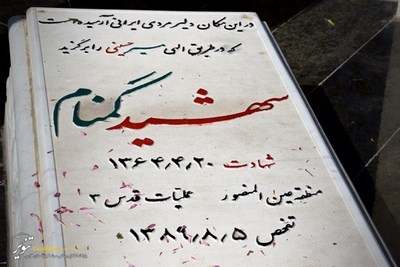 در این مکان دلیر مردی ایرانی آرمیده است
که در طریق الهی سیر حسینی را برگزید
شهید گمنام
شهادت ۱۳۶۴,۴,۲۰
منطقه عین المنصور عملیات قدس ۳
تفحص ۱۳۸۹,۸,۵